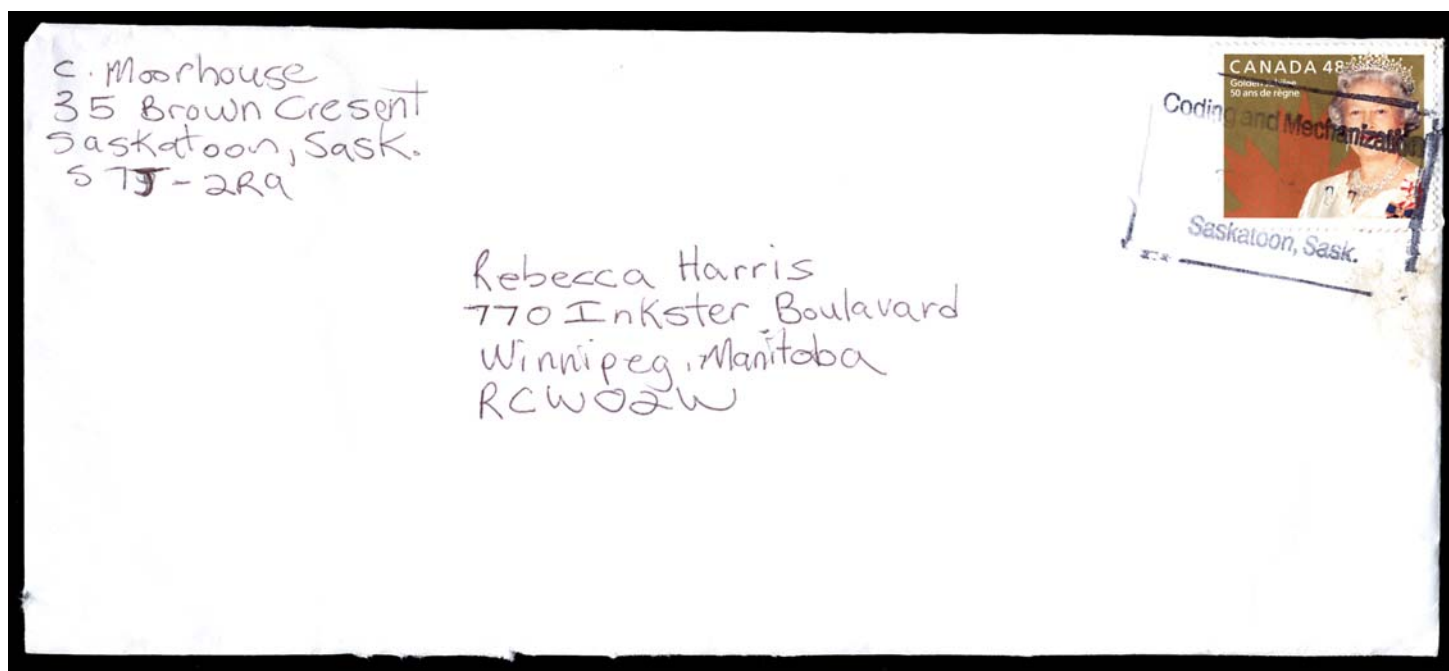 C. Moorhouse
35 Brown Cresent
Saskatoon, Sask.
S7J-2R9
CANADA 48
Golden Jubilee
50 ans de règne
Coding and Mechanization
Saskatoon, Sask.
Rebecca Harris
770 Inkster Boulavard
Winnipeg, Manitoba
RCW02W